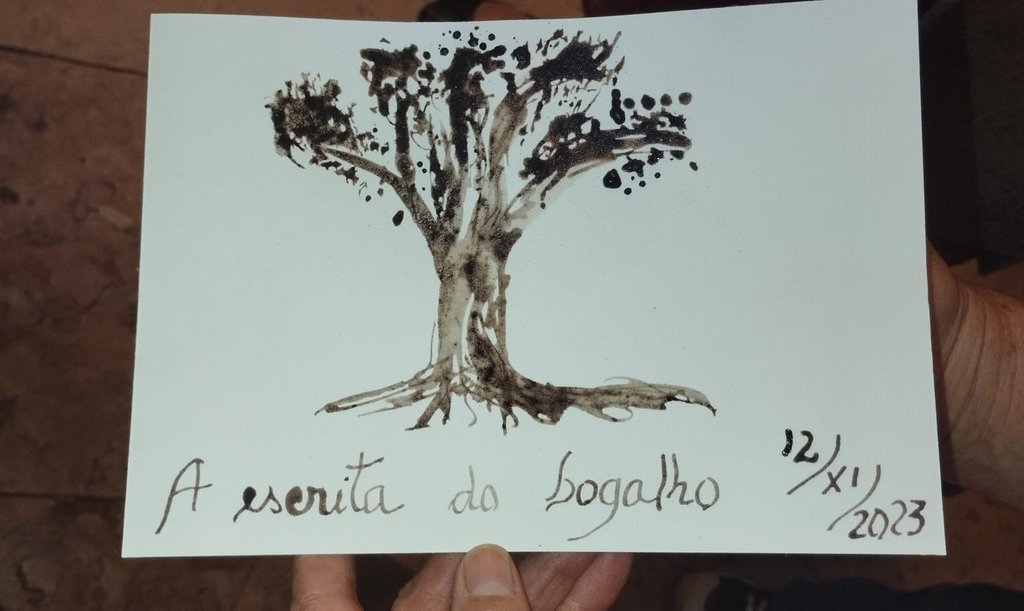 A escrita do bogalho
12/XI/
2023